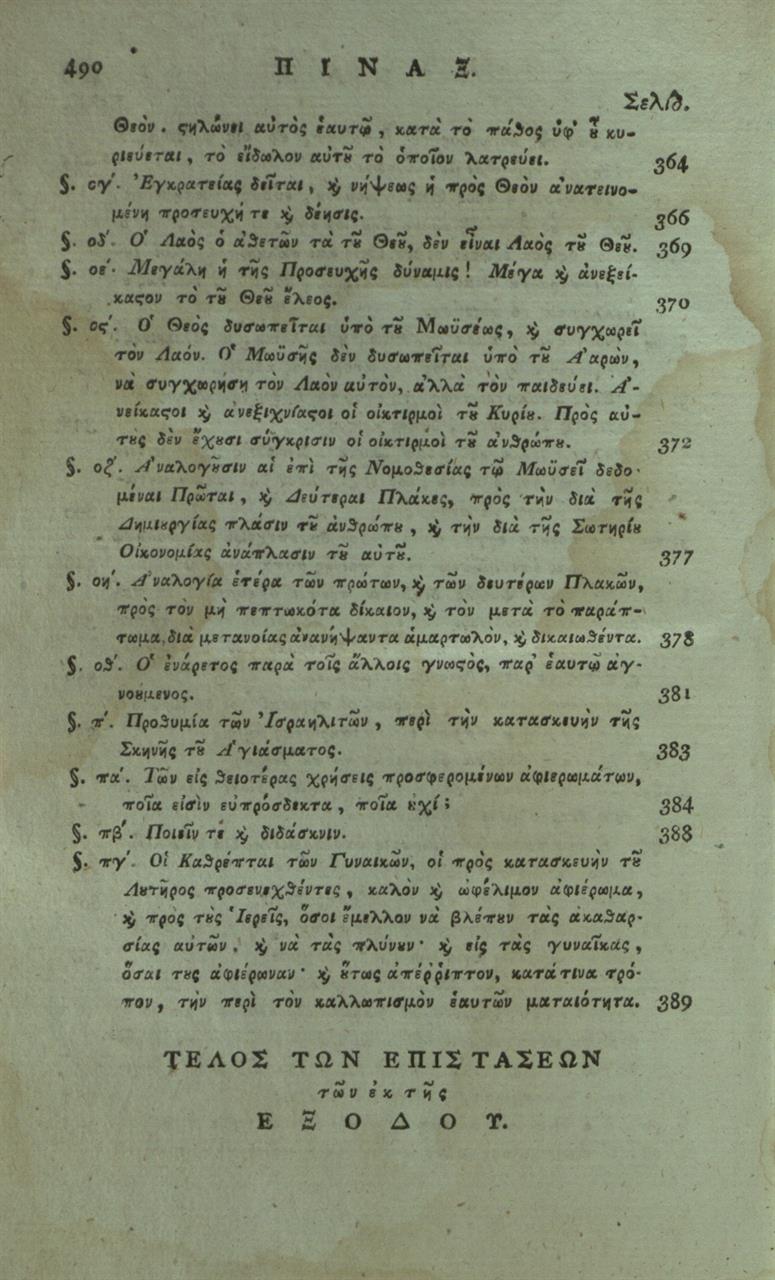 490 ΠΙΝΑΞ.
Σελίδ.
Θεὸν. ϛηλώνει αὐτὸς ἑαυτῷ, κατὰ τὸ πάθος ὑφ' ȣ̃̔ κυ-
ριεύεται, τὸ εἴδωλον αὐτȣ͂ τὸ ὁποῖον λατρεύει. 364
§. ογ΄. Ἐγκρατείας δεῖται, ϗ νήψεως ἡ πρὸς Θεὸν ἀνατεινο-
μένη προσευχή τε ϗ δέησις. 366
§. οδ΄. Ὁ Λαὸς ὁ ἀθετῶν τὰ τȣ͂ Θεȣ͂, δὲν εἶναι Λαὸς τȣ͂ Θεȣ͂. 369
§. οε΄. Μεγάλη ἡ τῆς Προσευχῆς δύναμις! Μέγα ϗ ἀνεξεί-
καϛον τὸ τȣ͂ Θεȣ͂ ἔλεος. 370
§. οϛ΄. Ὁ Θεὸς δυσωπεῖται ὑπὸ τȣ͂ Μωϋσέως, ϗ συγχωρεῖ
τὸν Λαόν. Ὁ Μωϋσῆς δὲν δυσωπεῖται ὑπὸ τȣ͂ Ἀαρὼν,
νὰ συγχωρήσῃ τὸν Λαὸν αὐτὸν, ἀλλὰ τὸν παιδεύει. Ἀ-
νείκαϛοι ϗ ἀνεξιχνίαϛοι οἱ οἰκτιρμοὶ τȣ͂ Κυρίȣ. Πρὸς αὐ-
τȣ̀ς δὲν ἔχȣσι σύγκρισιν οἱ οἰκτιρμοὶ τȣ͂ ἀνθρώπȣ. 372
§. οζ΄. Ἀναλογȣ͂σιν αἱ ἐπὶ τῆς Νομοθεσίας τῷ Μωϋσεῖ δεδο-
μέναι Πρῶται, ϗ Δεύτεραι Πλάκες, πρὸς τὴν διὰ τῆς
Δημιȣργίας πλάσιν τȣ͂ ἀνθρώπȣ, ϗ τὴν διὰ τῆς Σωτηρίȣ
Οἰκονομίας ἀνάπλασιν τȣ͂ αὐτȣ͂. 377
§. οη΄. Ἀναλογία ἑτέρα τῶν πρώτων, ϗ τῶν δευτέρων Πλακῶν,
πρὸς τὸν μὴ πεπτωκότα δίκαιον, ϗ τὸν μετὰ τὸ παράπ-
τωμα διὰ μετανοίας ἀνανήψαντα ἁμαρτωλὸν, ϗ δικαιωθέντα. 378
§. οθ΄. Ὁ ἐνάρετος παρὰ τοῖς ἄλλοις γνωϛὸς, παρ' ἑαυτῷ ἀγ-
νοȣ́μενος. 381
§. π΄. Προθυμία τῶν Ἰσραηλιτῶν, περὶ τὴν κατασκευὴν τῆς
Σκηνῆς τȣ͂ Ἁγιάσματος. 383
§. πα΄. Τῶν εἰς θειοτέρας χρήσεις προσφερομένων ἀφιερωμάτων,
ποῖα εἰσὶν εὐπρόσδεκτα, ποῖα ȣ̓χί; 384
§. πβ΄. Ποιεῖν τὲ ϗ διδάσκνιν. 388
§. πγ΄. Οἱ Καθρέπται τῶν Γυναικῶν, οἱ πρὸς κατασκευὴν τȣ͂
Λȣτῆρος προσενεχθέντες, καλὸν ϗ ὠφέλιμον ἀφιέρωμα,
ϗ πρὸς τȣ̀ς Ἱερεῖς, ὅσοι ἔμελλον νὰ βλέπȣν τὰς ἀκαθαρ-
σίας αὐτῶν, ϗ νὰ τὰς πλύνȣν· ϗ εἰς τὰς γυναῖκας,
ὅσαι τȣς ἀφιέρωναν· ϗ ȣ̔́τως ἀπέῤῥιπτον, κατά τινα τρό-
πον, τὴν περὶ τὸν καλλωπισμὸν ἑαυτῶν ματαιότητα. 389
ΤΕΛΟΣ ΤΩΝ ΕΠΙΣΤΑΣΕΩΝ
τῶν ἐκ τῆς
ΕΞΟΔΟΥ.